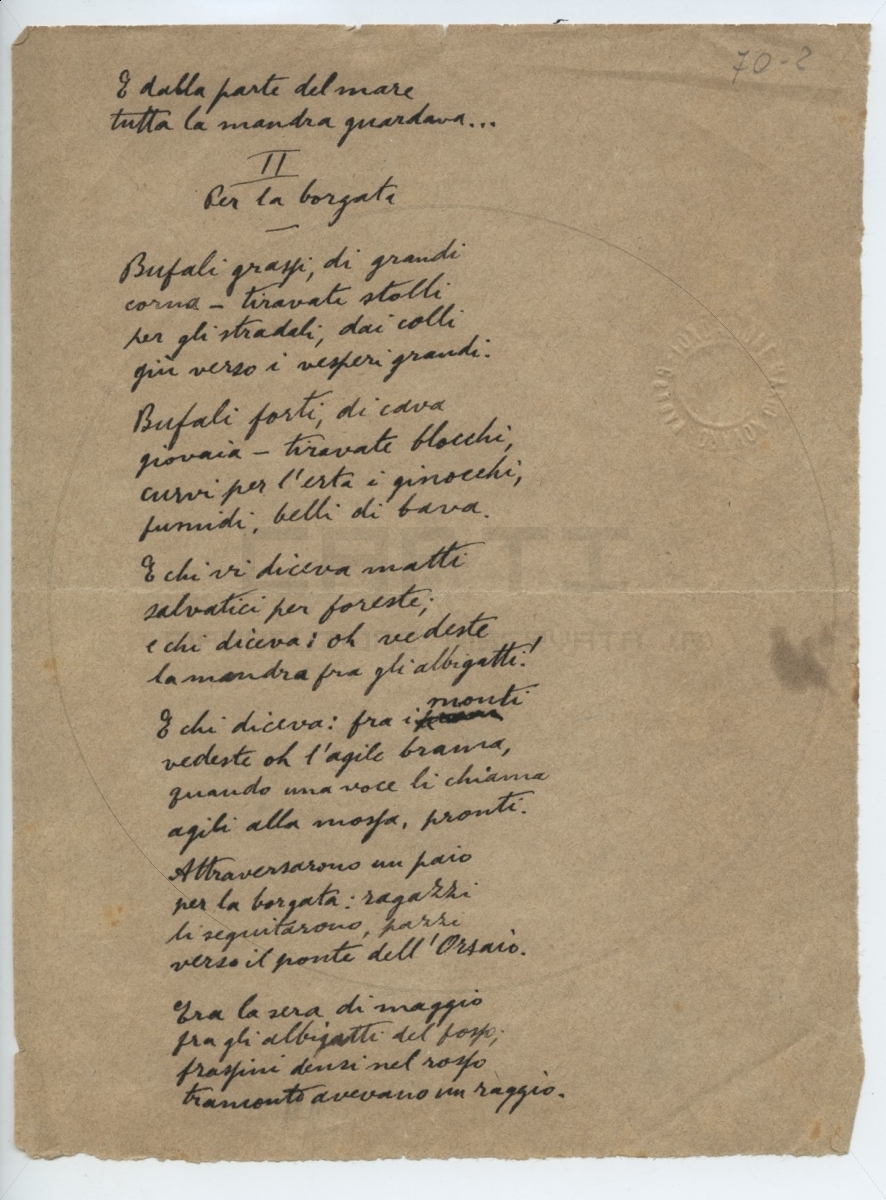 70-2
E dalla parte del mare
tutta la mandra guardava...
II
Per la borgata
Bufali grassi, di grandi
corna – tiravate stolli
per gli stradali, dai colli
giù verso i vesperi grandi.
Bufali forti, di cava
giovaia – tiravate blocchi,
curvi per l'erta i ginocchi,
fumidi, belli di bava.
E chi vi diceva matti
salvatici per foreste;
e chi diceva: oh vedeste
la mandra fra gli albigatti!
E chi diceva: fra i monti
vedeste oh l'agile brama,
quando una voce li chiama
agili alla mossa, pronti.
Attraversarono un paio
per la borgata: ragazzi
li seguitarono, pazzi
verso il ponte dell'Orsaio.
Era la sera di maggio
fra gli albigatti del fosso;
frassini densi nel rosso
tramonto avevano un raggio.